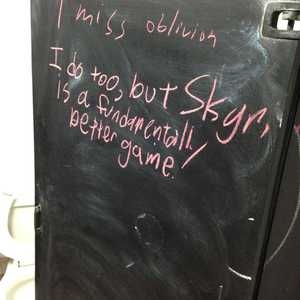 I miss oblivion
I do too, but Skyri
is a fundamentall
better game.